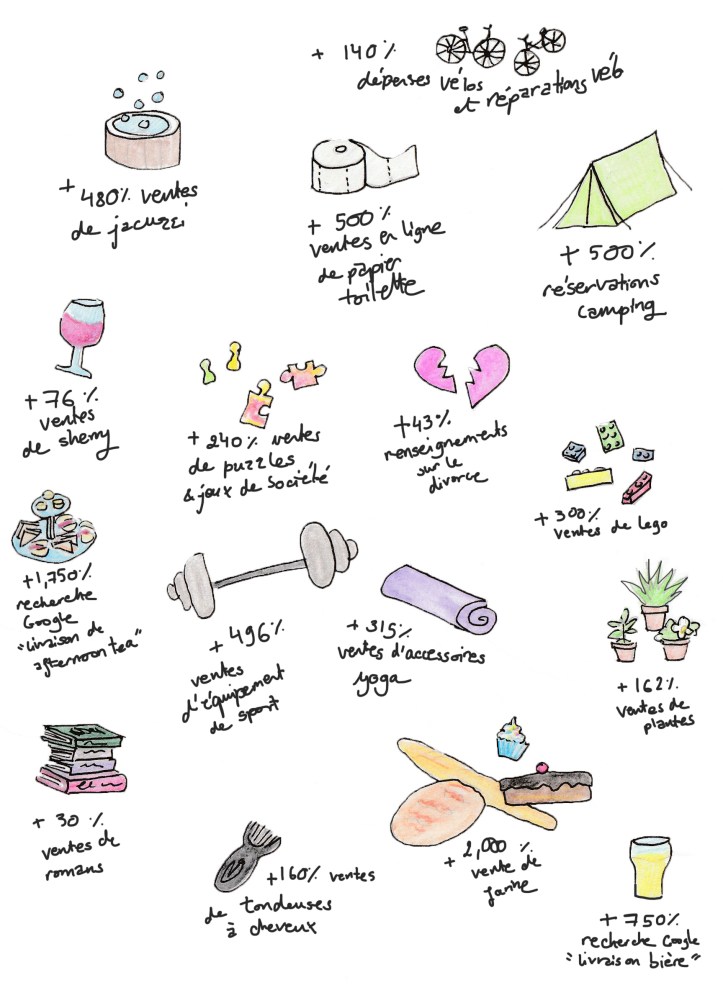 + 140%
dépenses vélos
et réparations vélo
+ 480% ventes
de jacuzzi
+ 500%
ventes en ligne
de papier
toilette
+ 500%
réservations
camping
+76%
ventes
de sherry
+ 240% ventes
de puzzles
& jeux de société
+43%
renseignements
sur le
divorce
+ 300%
ventes de lego
+1,750%
recherche
Google
"livraison de
afternoon tea"
+ 496%
ventes
d'équipement
de sport
+ 315%
ventes d'accessoires
yoga
+ 162%
ventes de
plantes
+ 30 %
ventes de
romans
+160% ventes
de tondeuses
à cheveux
+ 2,000%
vente de
farine
+ 750%
recherche Google
"livraison bière"